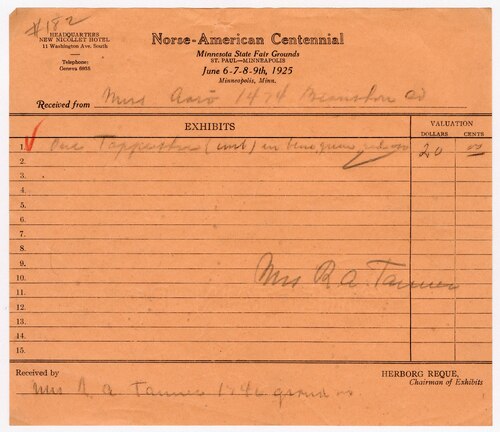 #182
HEADQUARTERS
NEW NICOLLET HOTEL
11 Washington Ave. South
Telephone:
Geneva 6935
Norse-American Centennial
Minnesota State Fair Grounds
ST. PAUL—MINNEAPOLIS
June 6-7-8-9th, 1925
Minneapolis, Minn.
Received from Mrs 1474
EXHIBITS
VALUATION
DOLLARS CENTS
1. One (umb) in 20 00
2.
3.
4.
5.
6.
7.
8.
9.
10. Mrs R A. Tanner
11.
12.
13.
14.
15.
Received by
HERBORG REQUE,
Chairman of Exhibits
Mrs R a Tanner